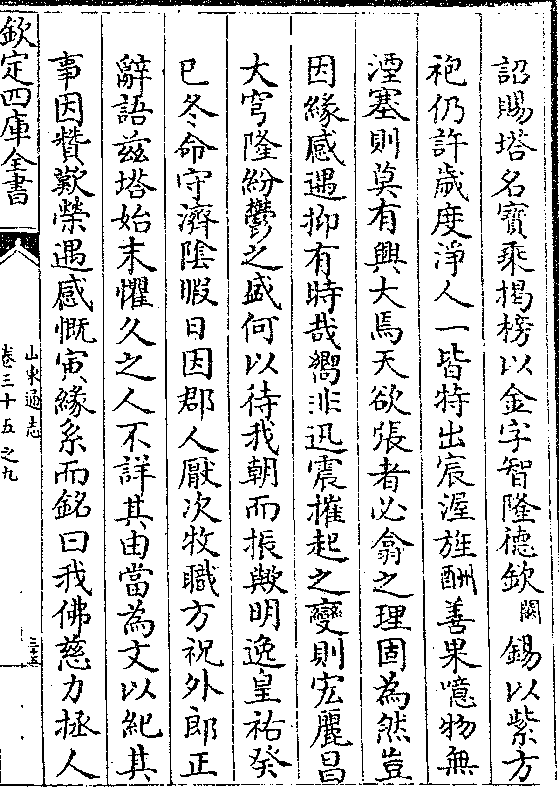 詔賜塔名寳乘揭榜以金字智隆德欽闕錫以紫方
袍仍許歲度淨人一皆特出宸渥旌酬善果噫物無
湮塞則莫有興大焉天欲張者必翕之理固為然豈
因緣感遇抑有時哉嚮非迅震摧起之變則宏麗昌
大穹隆紛鬱之盛何以待我朝而振歟明逸皇祐癸
巳冬命守濟陰暇日因郡人厭次牧職方祝外郎正
辭語兹塔始末懼久之人不詳其由當為文以紀其
事因贊歎榮遇感慨寅緣系而銘曰我佛慈力拯人
欽定四庫全書
山東通志
卷三十五之九